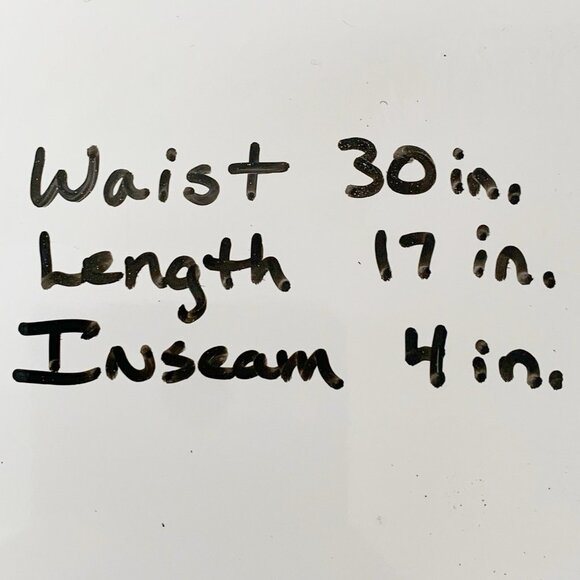 Waist 30 in.
Length 17 in.
Inseam 4 in.